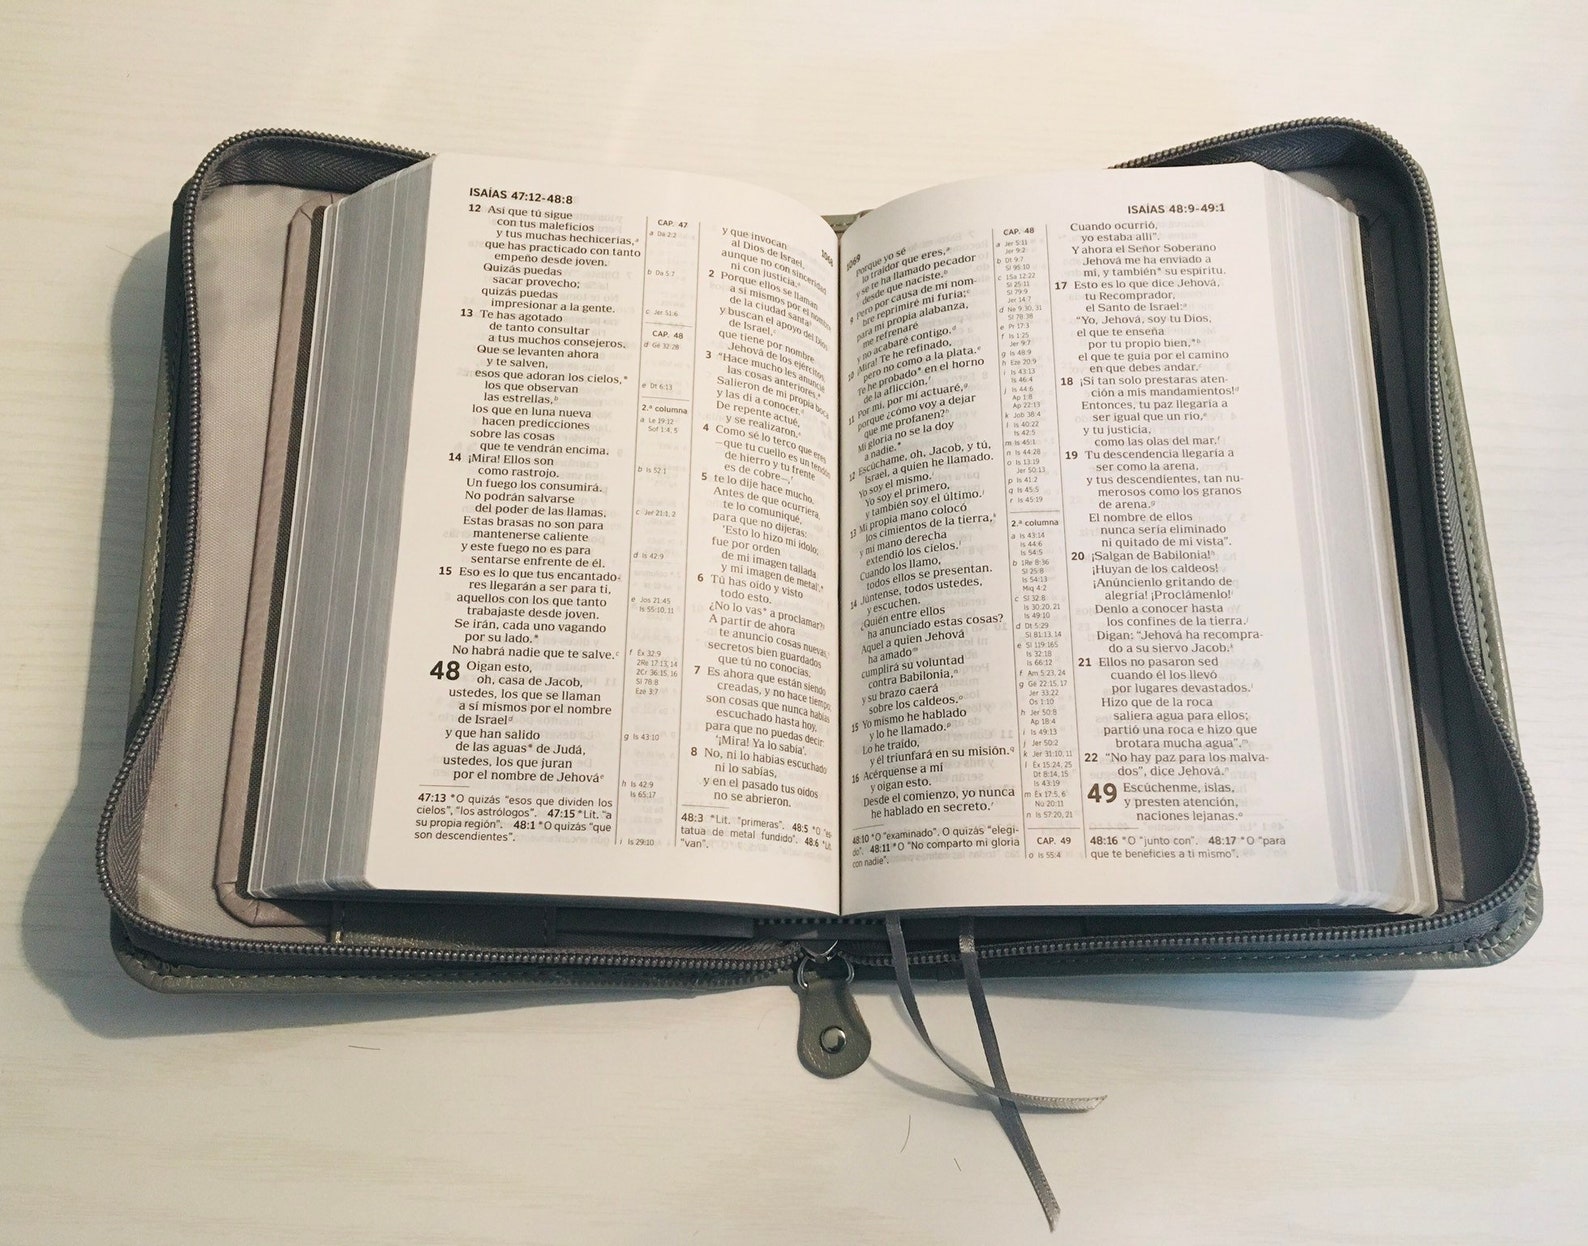 ISAÍAS 47:12-48:8
12 Así que tú sigue
con tus maleficios
y tus muchas hechicerías,ᵃ
que has practicado con tanto
empeño desde joven.
Quizás puedas
sacar provecho;
quizás puedas
impresionar a la gente.
13 Te has agotado
de tanto consultar
a tus muchos consejeros.
Que se levanten ahora
y te salven,
esos que adoran los cielos,*
los que observan
las estrellas,ᵇ
los que en luna nueva
hacen predicciones
sobre las cosas
que te vendrán encima.
14 ¡Mira! Ellos son
como rastrojo.
Un fuego los consumirá.
No podrán salvarse
del poder de las llamas.
Estas brasas no son para
mantenerse caliente
y este fuego no es para
sentarse enfrente de él.
15 Eso es lo que tus encantado-
res llegarán a ser para ti,
aquellos con los que tanto
trabajaste desde joven.
Se irán, cada uno vagando
por su lado.*
No habrá nadie que te salve.ᶜ
48 Oigan esto,
oh, casa de Jacob,
ustedes, los que se llaman
a sí mismos por el nombre
de Israelᵈ
y que han salido
de las aguas* de Judá,
ustedes, los que juran
por el nombre de Jehováᵉ
CAP. 47
a Da 2:2
b Da 5:7
c Jer 51:6
CAP. 48
d Gé 32:28
e Dt 6:13
2.ª columna
a Le 19:12
Sof 1:4, 5
b Is 52:1
c Jer 21:1, 2
d Is 42:9
e Jos 21:45
Is 55:10, 11
f Éx 32:9
2Re 17:13, 14
2Cr 36:15, 16
Sl 78:8
Eze 3:7
g Is 43:10
h Is 42:9
Is 65:17
i Is 29:10
1068
y que invocan
al Dios de Israel,
aunque no con sinceridad
ni con justicia.ᵃ
2 Porque ellos se llaman
a sí mismos por el nombre
de la ciudad santaᵇ
y buscan el apoyo del Dios
de Israel,ᶜ
que tiene por nombre
Jehová de los ejércitos.
3 “Hace mucho les anuncié
las cosas anteriores.*
Salieron de mi propia boca
y las di a conocer.ᵈ
De repente actué,
y se realizaron.ᵉ
4 Como sé lo terco que eres
—que tu cuello es un tendón
de hierro y tu frente
es de cobre—,ᶠ
5 te lo dije hace mucho.
Antes de que ocurriera,
te lo comuniqué,
para que no dijeras:
‘Esto lo hizo mi ídolo;
fue por orden
de mi imagen tallada
y mi imagen de metal’.*
6 Tú has oído y visto
todo esto.
¿No lo vas* a proclamar?ᵍ
A partir de ahora
te anuncio cosas nuevas,ʰ
secretos bien guardados
que tú no conocías.
7 Es ahora que están siendo
creadas, y no hace tiempo;
son cosas que nunca habías
escuchado hasta hoy,
para que no puedas decir:
‘¡Mira! Ya lo sabía’.
8 No, ni lo habías escuchado
ni lo sabías,
y en el pasado tus oídos
no se abrieron.
47:13 *O quizás “esos que dividen los
cielos”, “los astrólogos”. 47:15 *Lit. “a
su propia región”. 48:1 *O quizás “que
son descendientes”.
48:3 *Lit. “primeras”. 48:5 *O “es-
tatua de metal fundido”. 48:6 *Lit.
“van”.
ISAÍAS 48:9-49:1
1069
Porque yo sé
lo traidor que eres,ᵃ
y se te ha llamado pecador
desde que naciste.ᵇ
9 Pero por causa de mi nom-
bre reprimiré mi furia;ᶜ
para mi propia alabanza,
me refrenaré
y no acabaré contigo.ᵈ
10 ¡Mira! Te he refinado,
pero no como a la plata.ᵉ
Te he probado* en el horno
de la aflicción.ᶠ
11 Por mí, por mí actuaré,ᵍ
porque ¿cómo voy a dejar
que me profanen?ʰ
Mi gloria no se la doy
a nadie.*
12 Escúchame, oh, Jacob, y tú,
Israel, a quien he llamado.
Yo soy el mismo.ⁱ
Yo soy el primero,
y también soy el último.ʲ
13 Mi propia mano colocó
los cimientos de la tierra,ᵏ
y mi mano derecha
extendió los cielos.ˡ
Cuando los llamo,
todos ellos se presentan.
14 Júntense, todos ustedes,
y escuchen.
¿Quién entre ellos
ha anunciado estas cosas?
Aquel a quien Jehová
ha amadoᵐ
cumplirá su voluntad
contra Babilonia,ⁿ
y su brazo caerá
sobre los caldeos.ᵒ
15 Yo mismo he hablado
y lo he llamado.ᵖ
Lo he traído,
y él triunfará en su misión.
16 Acérquense a mí
y oigan esto.
Desde el comienzo, yo nunca
he hablado en secreto.ʳ
CAP. 48
a Jer 5:11
Jer 9:2
b Dt 9:7
Sl 95:10
c 1Sa 12:22
Sl 25:11
Sl 79:9
Jer 14:7
d Ne 9:30, 31
Sl 78:38
e Pr 17:3
f Is 1:25
Jer 9:7
g Is 48:9
h Eze 20:9
i Is 43:13
Is 46:4
j Is 44:6
Ap 1:8
Ap 22:13
k Job 38:4
l Is 40:22
Is 42:5
m Is 45:1
n Is 44:28
o Is 13:19
Jer 50:13
p Is 41:2
q Is 45:5
r Is 45:19
2.ª columna
a Is 43:14
Is 44:6
Is 54:5
b 1Re 8:36
Sl 25:8
Is 54:13
Miq 4:2
c Sl 32:8
Is 30:20, 21
Is 49:10
d Dt 5:29
Sl 81:13, 14
e Sl 119:165
Is 32:18
Is 66:12
f Am 5:23, 24
g Gé 22:15, 17
Jer 33:22
Os 1:10
h Jer 50:8
Ap 18:4
i Is 49:13
j Jer 50:2
k Jer 31:10, 11
l Éx 15:24, 25
Dt 8:14, 15
Is 43:19
m Éx 17:5, 6
Nú 20:11
n Is 57:20, 21
CAP. 49
o Is 55:4
Cuando ocurrió,
yo estaba allí”.
Y ahora el Señor Soberano
Jehová me ha enviado a
mí, y también* su espíritu.
17 Esto es lo que dice Jehová,
tu Recomprador,
el Santo de Israel:ᵃ
“Yo, Jehová, soy tu Dios,
el que te enseña
por tu propio bien,*ᵇ
el que te guía por el camino
en que debes andar.ᶜ
18 ¡Si tan solo prestaras aten-
ción a mis mandamientos!ᵈ
Entonces, tu paz llegaría a
ser igual que un río,ᵉ
y tu justicia,
como las olas del mar.ᶠ
19 Tu descendencia llegaría a
ser como la arena,
y tus descendientes, tan nu-
merosos como los granos
de arena.ᵍ
El nombre de ellos
nunca sería eliminado
ni quitado de mi vista”.
20 ¡Salgan de Babilonia!ʰ
¡Huyan de los caldeos!
¡Anúncienlo gritando de
alegría! ¡Proclámenlo!ⁱ
Denlo a conocer hasta
los confines de la tierra.ʲ
Digan: “Jehová ha recompra-
do a su siervo Jacob.ᵏ
21 Ellos no pasaron sed
cuando él los llevó
por lugares devastados.ˡ
Hizo que de la roca
saliera agua para ellos;
partió una roca e hizo que
brotara mucha agua”.ᵐ
22 “No hay paz para los malva-
dos”, dice Jehová.ⁿ
49 Escúchenme, islas,
y presten atención,
naciones lejanas.ᵒ
48:10 *O “examinado”. O quizás “elegi-
do”. 48:11 *O “No comparto mi gloria
con nadie”.
48:16 *O “junto con”. 48:17 *O “para
que te beneficies a ti mismo”.